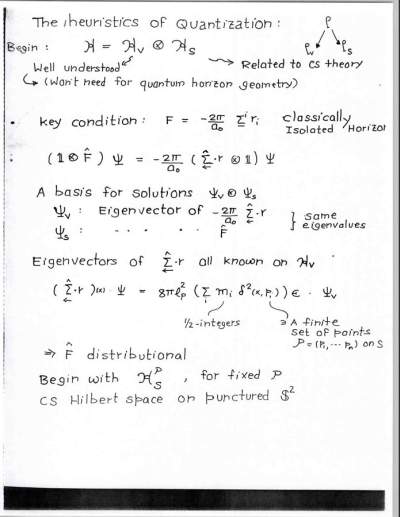 The heuristics of Quantization:
ρ
ρ_v ρ_s
Begin: ℋ = ℋ_v ⊗ ℋ_s
Well understood ⤳ Related to CS theory
↳ (Won't need for quantum horizon geometry)
• key condition: F = -2π/a₀ Σⁱ rᵢ classically
Isolated Horizon
(𝟙 ⊗ F̂) Ψ = -2π/a₀ (Σ̂·r ⊗ 𝟙) Ψ
A basis for solutions Ψ_v ⊗ Ψ_s
Ψ_v : Eigenvector of -2π/a₀ Σ̂·r } same
Ψ_s : · · · · F̂ eigenvalues
Eigenvectors of Σ̂·r all known on ℋ_v
(Σ̂·r)(x) · Ψ = 8πℓ_p² (Σ mᵢ δ²(x,pᵢ)) ε · Ψ_v
½-integers ∋ A finite
set of points
P = (p₁, ··· pₙ) on S
⇒ F̂ distributional
Begin with ℋ_S^P , for fixed P
CS Hilbert space on punctured S²